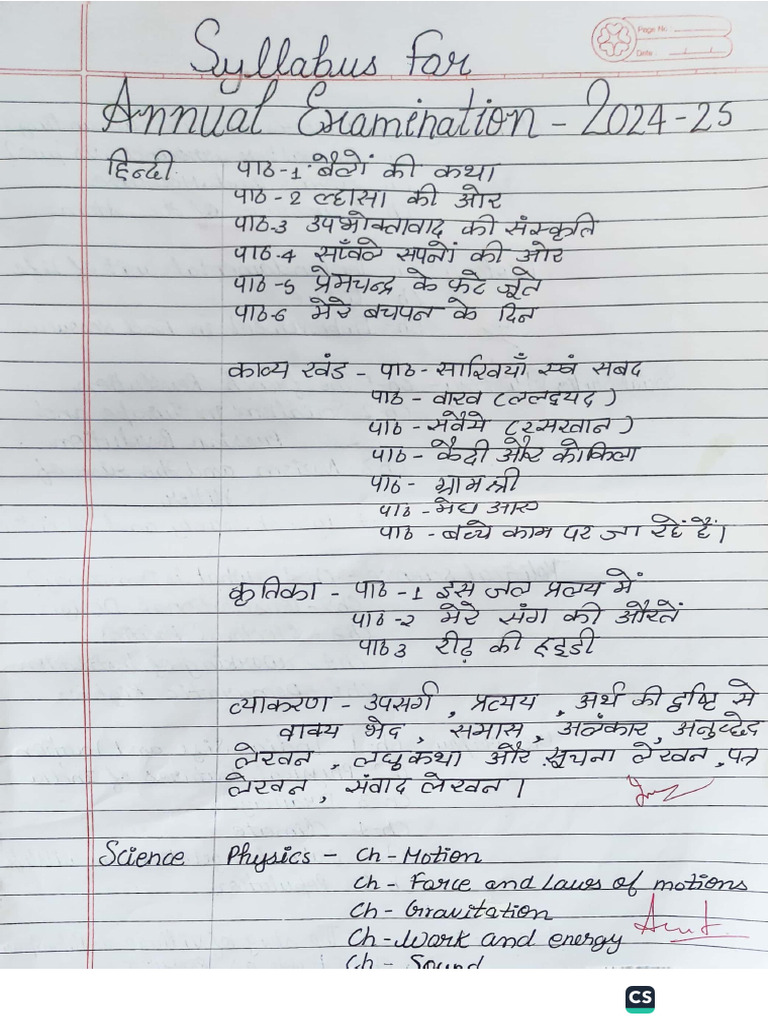 Page No.
Date
Syllabus for
Annual Examination - 2024-25
हिन्दी पाठ-1. बैलों की कथा
पाठ-2 ल्हासा की ओर
पाठ-3 उपभोक्तावाद की संस्कृति
पाठ-4 साँवले सपनों की ओर
पाठ-5 प्रेमचन्द्र के फटे जूते
पाठ-6 मेरे बचपन के दिन
काव्य खंड - पाठ - साखियाँ एवं सबद
पाठ - वाख (ललद्यद)
पाठ - सवैमे (रसखान)
पाठ - कैदी और कोकिला
पाठ - ग्रामश्री
पाठ - मेघ आए
पाठ - बच्चे काम पर जा रहें हैं।
कृतिका - पाठ -1 इस जल प्रलय में
पाठ -2 मेरे संग की औरतें
पाठ 3 रीढ़ की हड्डी
व्याकरण - उपसर्ग, प्रत्यय, अर्थ की दृष्टि से
वाक्य भेद, समास, अलंकार, अनुच्छेद
लेखन, लघुकथा और सूचना लेखन, पत्र
लेखन, संवाद लेखन।
Science Physics - Ch - Motion
Ch - Force and Laws of motions
Ch - Gravitation
Ch - Work and energy
Ch - Sound
CS